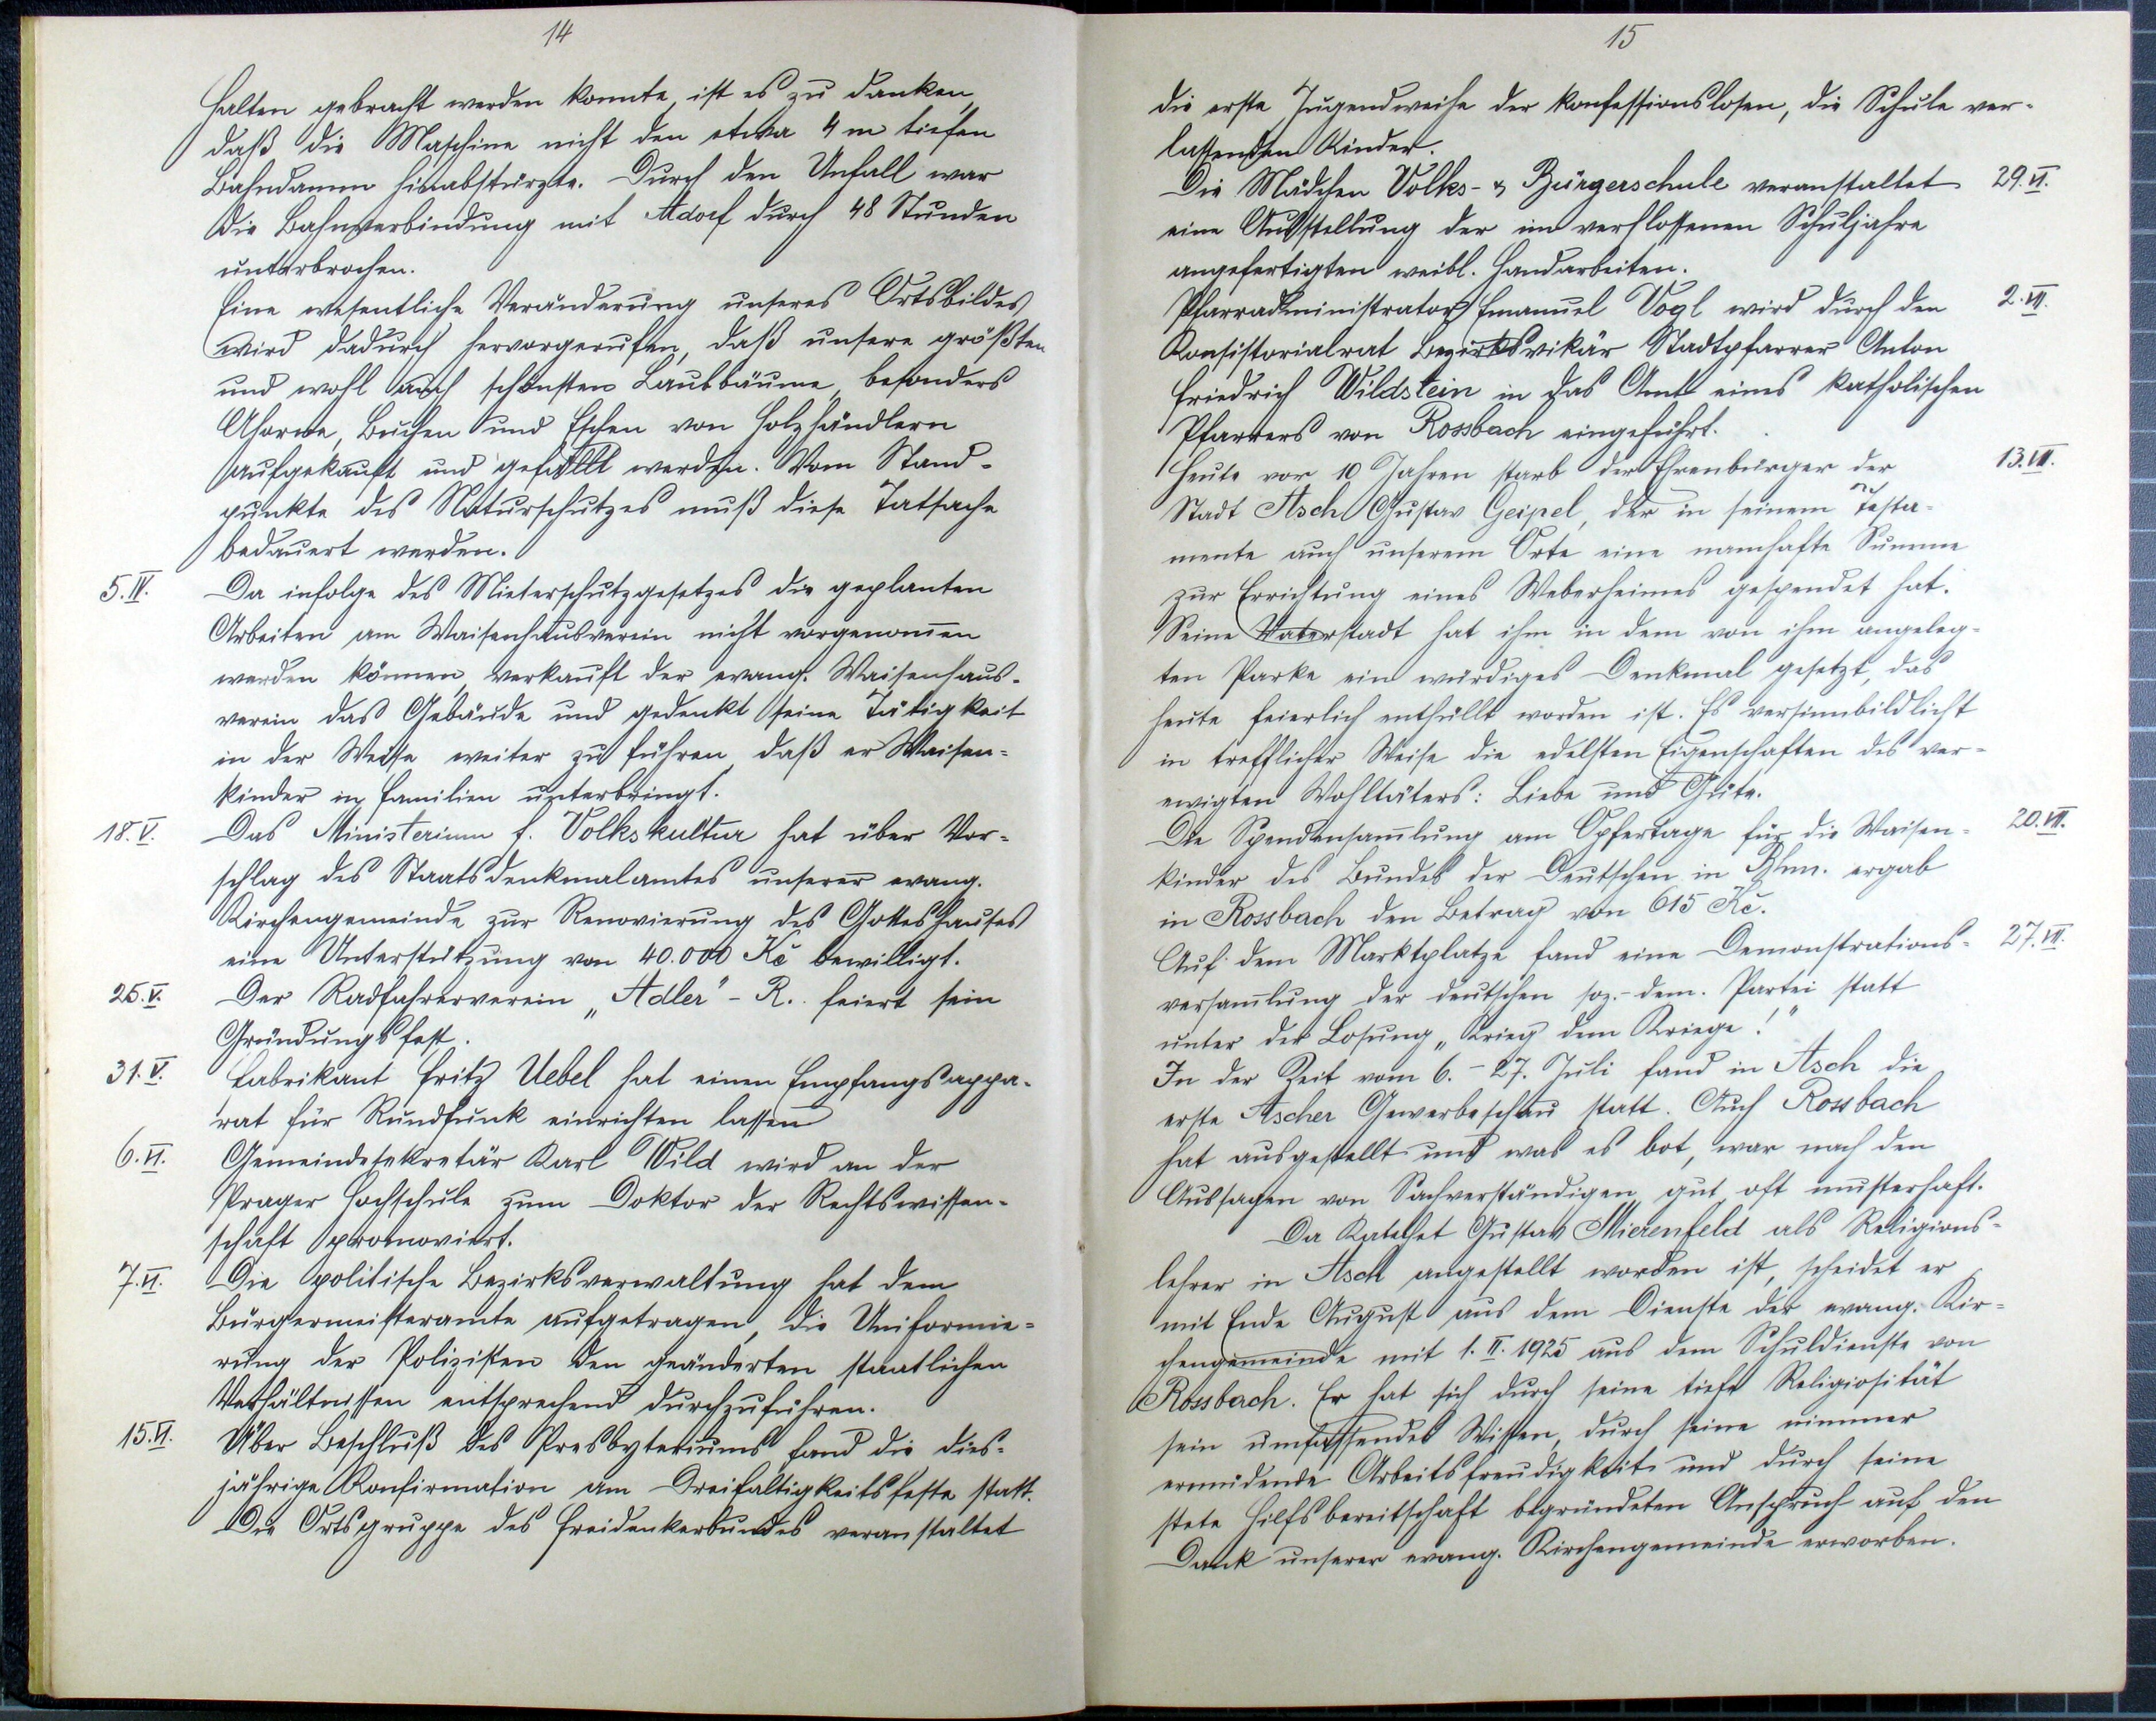 14
halten gebracht werden konnte, ist es zu danken,
daß die Maschine nicht den etwa 4 m tiefen
Bahndamm hinabstürzte. Durch den Unfall war
die Bahnverbindung mit Adorf durch 48 Stunden
unterbrochen.
Eine wesentliche Veränderung unseres Ortsbildes
wird dadurch hervorgerufen, daß unsere größten
und wohl auch schönsten Laubbäume, besonders
Ahorne, Buchen und Eschen von Holzhändlern
aufgekauft und gefällt werden. Vom Stand-
punkte des Naturschutzes muß diese Tatsache
bedauert werden.
5.IV. Da infolge des Mieterschutzgesetzes die geplanten
Arbeiten am Waisenhausverein nicht vorgenom̄en
werden können, verkauft der evang. Waisenhaus-
verein das Gebäude und gedenkt seine Tätigkeit
in der Weise weiter zu führen, daß er Waisen-
kinder in Familien unterbringt.
18.V. Das Ministerium f. Volkskultur hat über Vor-
schlag des Staatsdenkmalamtes unserer evang.
Kirchengemeinde zur Renovierung des Gotteshauses
eine Unterstützung von 40.000 Kč bewilligt.
25.V. Der Radfahrerverein „Adler" - R. feiert sein
Gründungsfest.
31.V. Fabrikant Fritz Uebel hat einen Empfangsappa-
rat für Rundfunk einrichten lassen
6.VI. Gemeindesekretär Karl Wild wird an der
Prager Hochschule zum Doktor der Rechtswissen-
schaft promoviert.
7.VI. Die politische Bezirksverwaltung hat dem
Bürgermeisteramte aufgetragen, die Uniformie-
rung der Polizisten den geänderten staatlichen
Verhältnissen entsprechend durchzuführen.
15.VI. Über Beschluß des Presbyteriums fand die dies-
jährige Konfirmation am Dreifaltigkeitsfeste statt.
Die Ortsgruppe des Freidenkerbundes veranstaltet
15
die erste Jugendweihe der konfessionslosen, die Schule ver-
lassenden Kinder.
Die Mädchen Volks- & Bürgerschule veranstaltet 29.VI.
eine Ausstellung der im verflossenen Schuljahre
angefertigten weibl. Handarbeiten.
Pfarradministrator Emanuel Vogl wird durch den 2.VII.
Konsistorialrat Bezirksvikär Stadtpfarrer Anton
Friedrich Wildstein in das Amt eines katholischen
Pfarrers von Rossbach eingeführt.
Heute vor 10 Jahren starb der Ehrenbürger der 13.VII.
Stadt Asch Gustav Geipel, der in seinem Testa-
mente auch unserem Orte eine namhafte Summe
zur Errichtung eines Weberheimes gespendet hat.
Seine Vaterstadt hat ihm in dem von ihm angeleg-
ten Parke ein würdiges Denkmal gesetzt, das
heute feierlich enthüllt worden ist. Es versinnbildlicht
in trefflicher Weise die edelsten Eigenschaften des ver-
ewigten Wohltäters: Liebe und Güte.
Die Spendensam̄lung am Opfertage für die Waisen- 20.VII.
kinder des Bundes der Deutschen in Bhm. ergab
in Rossbach den Betrag von 615 Kč.
Auf dem Marktplatze fand eine Demonstrations- 27.VII.
versam̄lung der deutschen soz.-dem. Partei statt
unter der Losung „Krieg dem Kriege!"
In der Zeit vom 6. - 27. Juli fand in Asch die
erste Ascher Gewerbeschau statt. Auch Rossbach
hat ausgestellt und was es bot, war nach den
Aussagen von Sachverständigen gut, oft musterhaft.
Da Katechet Gustav Mierenfeld als Religions-
lehrer in Asch angestellt worden ist, scheidet er
mit Ende August aus dem Dienste der evang. Kir-
chengemeinde mit 1. II. 1925 aus dem Schuldienste von
Rossbach. Er hat sich durch seine tiefe Religiosität
sein umfassendes Wissen, durch seine nimmer
ermüdende Arbeitsfreudigkeit und durch seine
stete Hilfsbereitschaft begründeten Anspruch auf den
Dank unserer evang. Kirchengemeinde erworben.